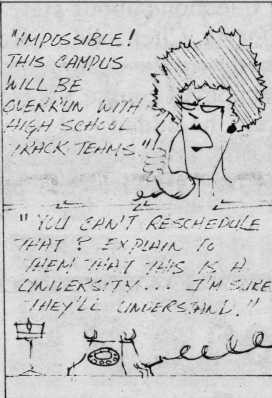 "IMPOSSIBLE!
THIS CAMPUS
WILL BE
OVERRUN WITH
HIGH SCHOOL
TRACK TEAMS."
"YOU CAN'T RESCHEDULE
THAT? EXPLAIN TO
THEM THAT THIS IS A
UNIVERSITY... I'M SURE
THEY'LL UNDERSTAND."